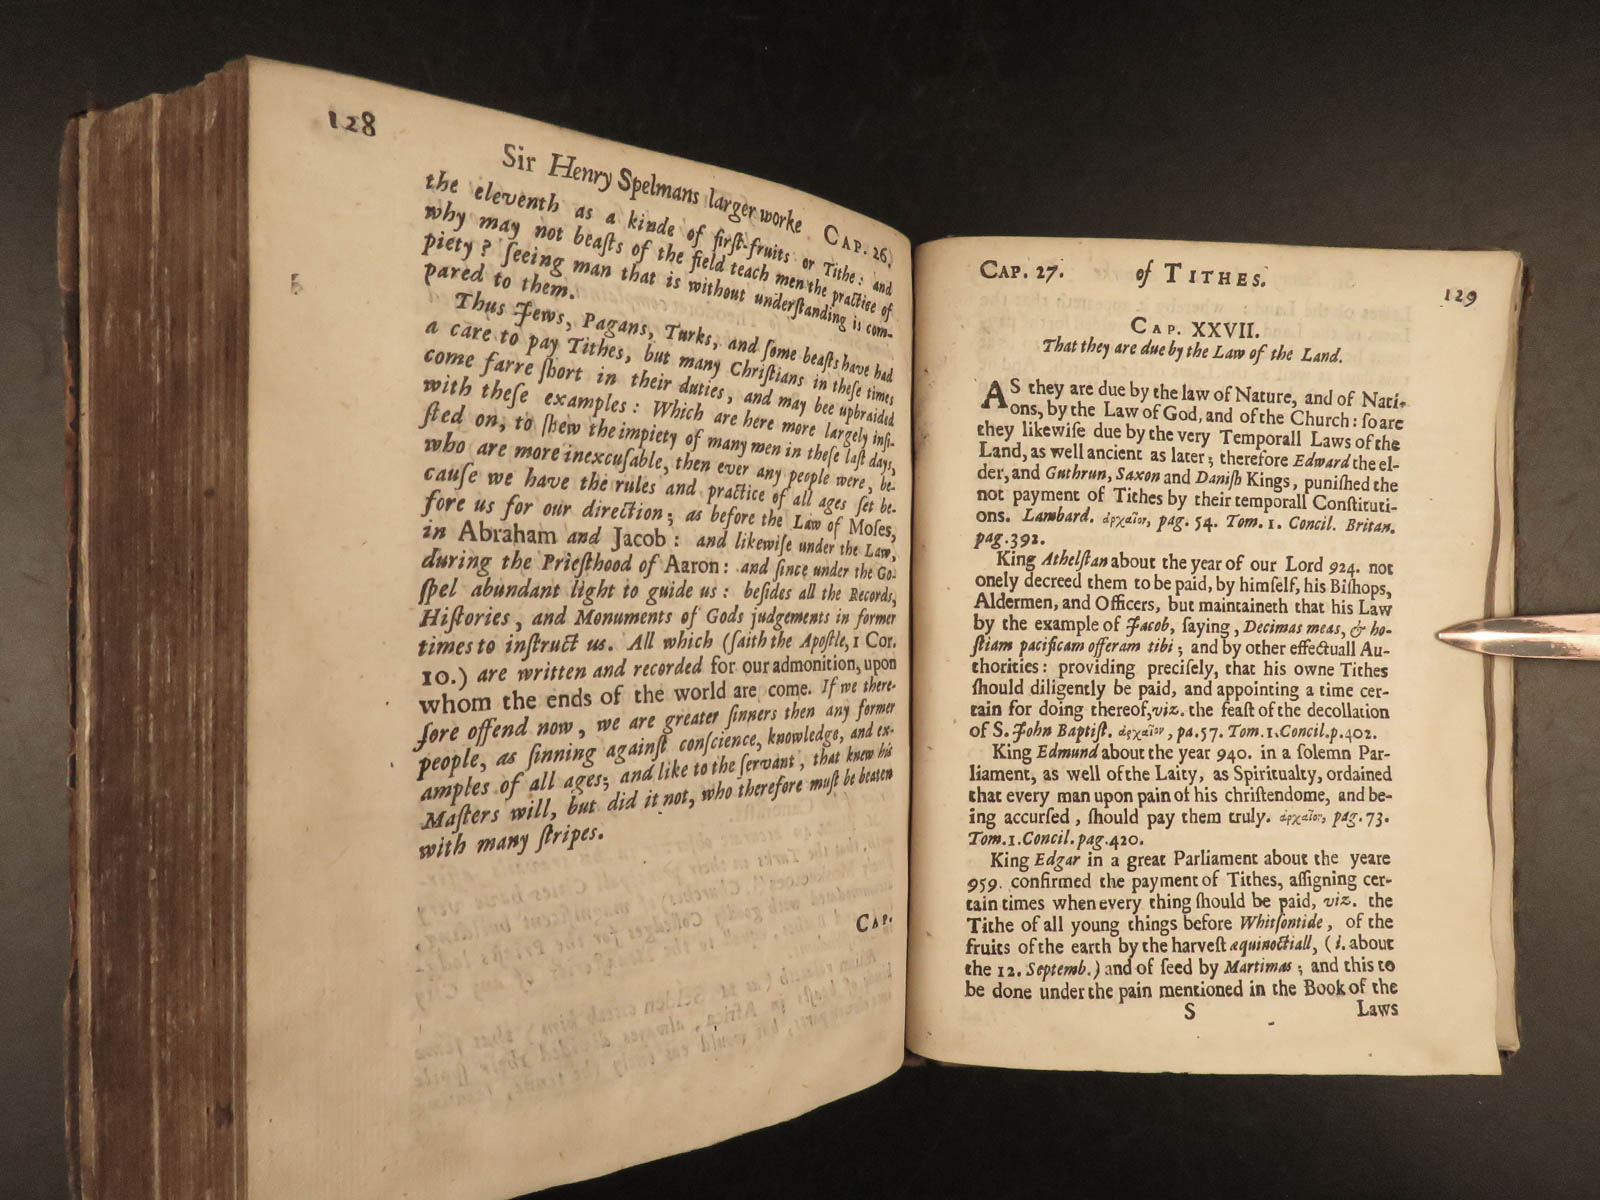 128
Sir Henry Spelmans larger worke CAP. 26.
the eleventh as a kinde of firſt-fruits or Tithe: and
why may not beaſts of the field teach men the practice of
piety? ſeeing man that is without underſtanding is com-
pared to them.
Thus Jews, Pagans, Turks, and ſome beaſts have had
a care to pay Tithes, but many Chriſtians in theſe times
come farre ſhort in their duties, and may bee upbraided
with theſe examples: Which are here more largely inſi-
ſted on, to ſhew the impiety of many men in theſe laſt days,
who are more inexcuſable, then ever any people were, be-
cauſe we have the rules and practice of all ages ſet be-
fore us for our direction; as before the Law of Moſes,
in Abraham and Jacob: and likewiſe under the Law,
during the Prieſthood of Aaron: and ſince under the Go-
ſpel abundant light to guide us: beſides all the Records,
Hiſtories, and Monuments of Gods judgements in former
times to inſtruct us. All which (ſaith the Apoſtle, 1 Cor.
10.) are written and recorded for our admonition, upon
whom the ends of the world are come. If we there-
fore offend now, we are greater ſinners then any former
people, as ſinning againſt conſcience, knowledge, and ex-
amples of all ages; and like to the ſervant, that knew his
Maſters will, but did it not, who therefore muſt be beaten
with many ſtripes.
CAP.
CAP. 27. of TITHES. 129
CAP. XXVII.
That they are due by the Law of the Land.
AS they are due by the law of Nature, and of Nati-
ons, by the Law of God, and of the Church: ſo are
they likewiſe due by the very Temporall Laws of the
Land, as well ancient as later; therefore Edward the el-
der, and Guthrun, Saxon and Daniſh Kings, puniſhed the
not payment of Tithes by their temporall Conſtituti-
ons. Lambard. ἀρχαῖον, pag. 54. Tom. 1. Concil. Britan.
pag. 392.
King Athelſtan about the year of our Lord 924. not
onely decreed them to be paid, by himſelf, his Biſhops,
Aldermen, and Officers, but maintaineth that his Law
by the example of Jacob, ſaying, Decimas meas, & ho-
ſtiam pacificam offeram tibi; and by other effectuall Au-
thorities: providing preciſely, that his owne Tithes
ſhould diligently be paid, and appointing a time cer-
tain for doing thereof, viz. the feaſt of the decollation
of S. John Baptiſt. ἀρχαῖον, pa. 57. Tom. 1. Concil. p. 402.
King Edmund about the year 940. in a ſolemn Par-
liament, as well of the Laity, as Spiritualty, ordained
that every man upon pain of his chriſtendome, and be-
ing accurſed, ſhould pay them truly. ἀρχαῖον, pag. 73.
Tom. 1. Concil. pag. 420.
King Edgar in a great Parliament about the yeare
959. confirmed the payment of Tithes, aſſigning cer-
tain times when every thing ſhould be paid, viz. the
Tithe of all young things before Whitſontide, of the
fruits of the earth by the harveſt æquinoctiall, (i. about
the 12. Septemb.) and of ſeed by Martimas; and this to
be done under the pain mentioned in the Book of the
S Laws